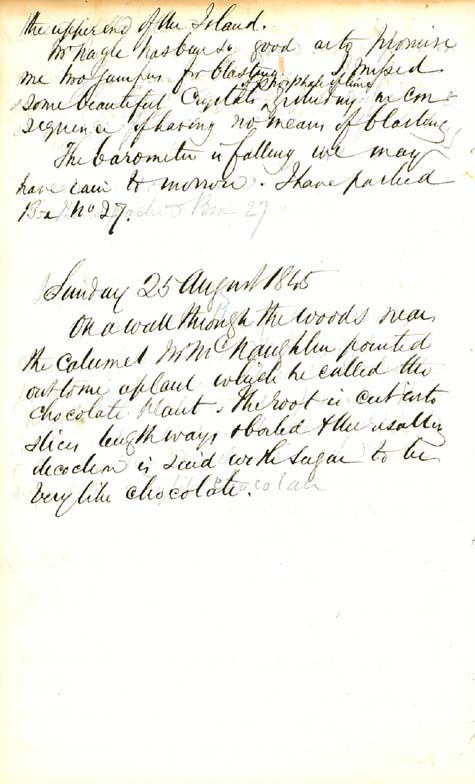 the upper end of the Island.
Mr Nagle has been so good as to promise
me two jumpers for blasting. I missed
of Phosphate of lime
some beautiful Crystals yesterday in con-
sequence of having no means of blasting
The barometer is falling we may
have rain tomorrow. I have packed
Box No 27.
Sunday 25 August 1845
On a walk through the woods near
the Calumet Mr McNaughlin pointed
out to me a plant which he called the
chocolate plant. The root is cut into
slices lengthways boiled & the resulting
decoction is said with sugar to be
very like chocolate.